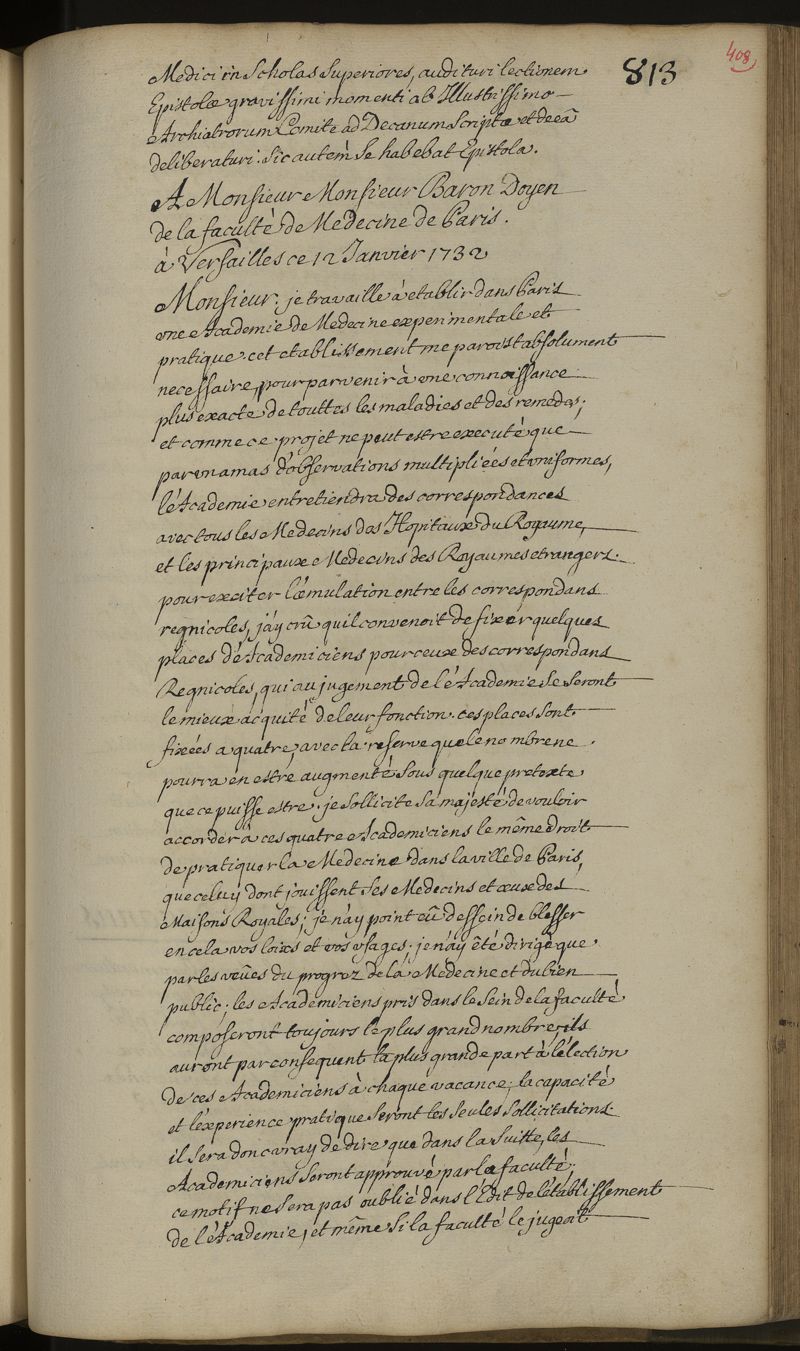 408
813
Medici in Scholas Superiores, audituri lectionem
Epistolæ gravissimi momenti ab Illustrissimo
Archiatrorum Comite ad Decanum Scriptæ et de eâ
deliberaturi. Sic autem Se habebat Epistola.
A Monsieur Monsieur Baron Doyen
de la faculté de Medecine de Paris.
à Versailles ce 12 Janvier 1732
Monsieur. je travaille à etablir dans Paris
une Academie de Medecine experimentale et
pratique. cet etablissement me paroist absolument
necessaire, pour parvenir à une connoissance
plus exacte de touttes les maladies et des remedes;
et comme ce projet ne peut estre executé que
par un amas d'observations multipliées et uniformes,
l'Academie entretiendra des correspondances
avec tous les Medecins des Hopitaux du Royaume,
et les principaux Medecins des Royaumes etrangers.
pour exciter l'émulation entre les correspondans
regnicoles, j'ay crû qu'il convenoit de fixer quelques
places d'Academiciens pour ceux des correspondans
Regnicoles, qui au jugement de l'Academie Se Seront
le mieux acquité de leur fonction. ces places Sont
fixées a quatre, avec la reserve que le nombre ne
pourra en estre augmenté Sous quelque pretexte
que ce puisse estre. je Sollicite Sa majesté de vouloir
accorder à ces quatre Academiciens le même Droit
de pratiquer la Medecine dans la ville de Paris,
que celuy dont joüissent Ses Medecins et ceux des
Maisons Royales; je n'ay point eû dessein de blesser
en cela vos loix et vos usages; je n'ay été dirigé que
par les veües du progrez de la Medecine et du bien
public; les Academiciens pris dans le Sein de la faculté
composeront toujours le plus grand nombre, ils
auront par consequent la plus grande part à l'élection
de ces Academiciens à chaque vacance; la capacité
et l'experience pratique Seront les Seules Sollicitations.
il Sera donc vray de dire que dans la Suitte, les
Academiciens Seront approuvé par la faculté;
ce motif ne Sera pas oublié dans l'Edit de l'établissement
de l'Academie, et même Si la faculté le jugeoit